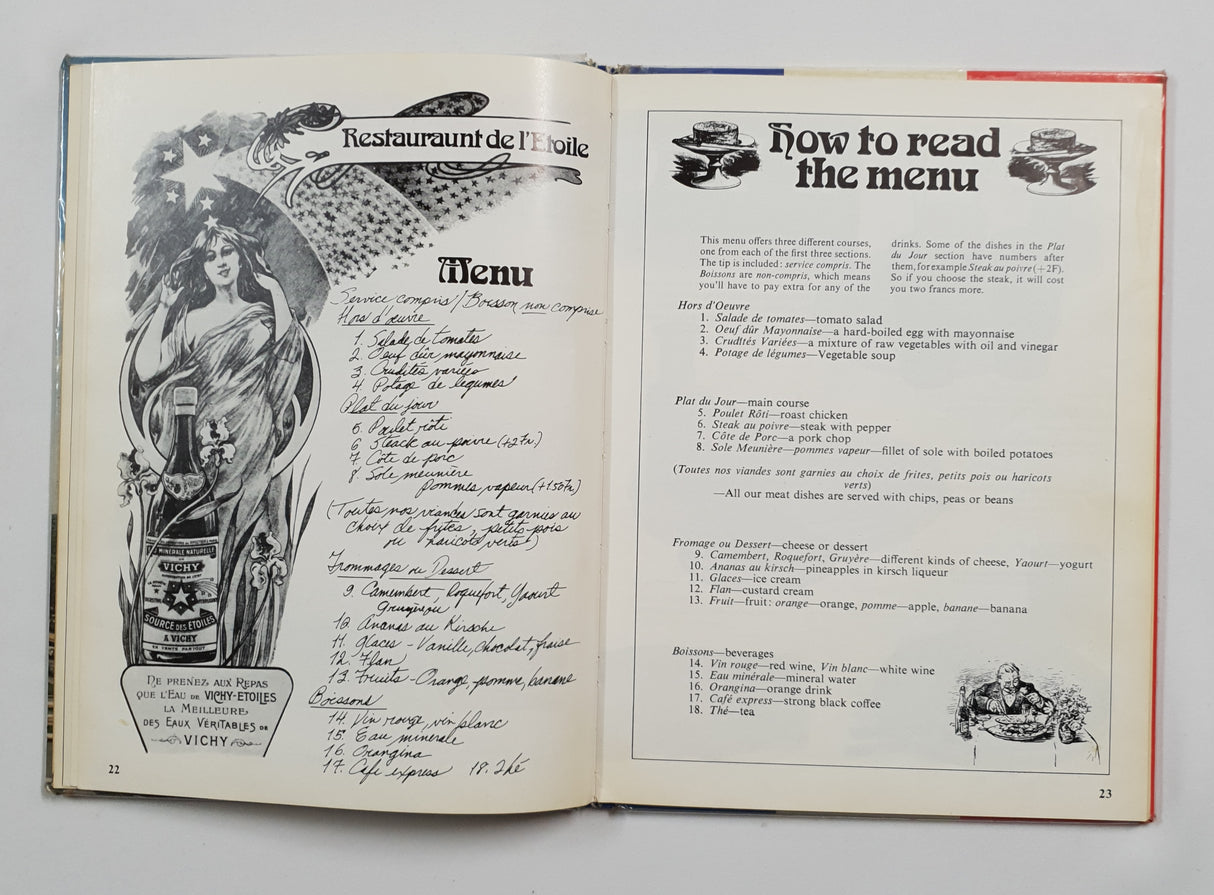 Restauraunt de l'Etoile
Menu
Service compris / Boisson non comprise
Hors d'œuvre
1. Salade de tomates
2. Oeuf dûr mayonnaise
3. Crudités variées
4. Potage de légumes
Plat du jour
5. Poulet rôti
6 Steack au poivre (+2Fr.)
7. Côte de porc
8. Sole meunière
Pommes vapeur (+1.50Fr)
(Toutes nos viandes sont garnies au
choix de frites, petits pois
ou haricots verts)
Frommages ou Dessert
9. Camembert, Roquefort, Yaourt
10. Ananas au Kirsche
11. Glaces - Vanille, chocolat, fraise
12. Flan
13. Fruits - Orange, pomme, banane
Boissons
14. Vin rouge, vin blanc
15. Eau minerale
16. Orangina
17. Cafe express 18. Thé
MINÉRALE NATURELLE
VICHY
SOURCE DES ÉTOILES
À VICHY
EN VENTE PARTOUT
NE PRENEZ AUX REPAS
QUE L'EAU DE VICHY-ETOILES
LA MEILLEURE
DES EAUX VÉRITABLES DE
VICHY
22
How to read
the menu
This menu offers three different courses,
one from each of the first three sections.
The tip is included: service compris. The
Boissons are non-compris, which means
you'll have to pay extra for any of the
drinks. Some of the dishes in the Plat
du Jour section have numbers after
them, for example Steak au poivre (+2F).
So if you choose the steak, it will cost
you two francs more.
Hors d'Oeuvre
1. Salade de tomates—tomato salad
2. Oeuf dûr Mayonnaise—a hard-boiled egg with mayonnaise
3. Crudités Variées—a mixture of raw vegetables with oil and vinegar
4. Potage de légumes—Vegetable soup
Plat du Jour—main course
5. Poulet Rôti—roast chicken
6. Steak au poivre—steak with pepper
7. Côte de Porc—a pork chop
8. Sole Meunière—pommes vapeur—fillet of sole with boiled potatoes
(Toutes nos viandes sont garnies au choix de frites, petits pois ou haricots
verts)
—All our meat dishes are served with chips, peas or beans
Fromage ou Dessert—cheese or dessert
9. Camembert, Roquefort, Gruyère—different kinds of cheese, Yaourt—yogurt
10. Ananas au kirsch—pineapples in kirsch liqueur
11. Glaces—ice cream
12. Flan—custard cream
13. Fruit—fruit: orange—orange, pomme—apple, banane—banana
Boissons—beverages
14. Vin rouge—red wine, Vin blanc—white wine
15. Eau minérale—mineral water
16. Orangina—orange drink
17. Café express—strong black coffee
18. Thé—tea
23